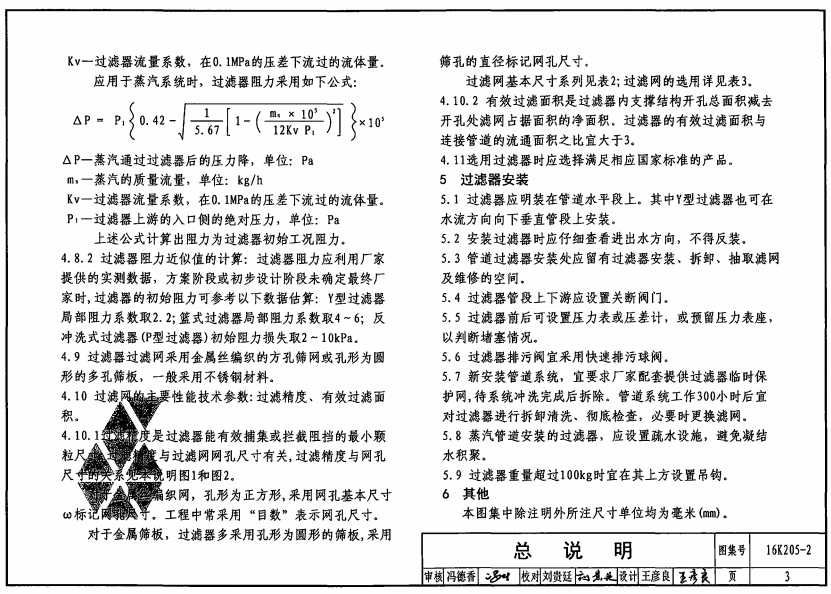 Kv—过滤器流量系数，在0.1MPa的压差下流过的流体量.
应用于蒸汽系统时，过滤器阻力采用如下公式:
ΔP = P₁{0.42-√(1/5.67[1-(mₛ×10⁵/12Kv P₁)²])}×10⁵
ΔP—蒸汽通过过滤器后的压力降，单位：Pa
mₛ—蒸汽的质量流量，单位：kg/h
Kv—过滤器流量系数，在0.1MPa的压差下流过的流体量.
P₁—过滤器上游的入口侧的绝对压力，单位：Pa
上述公式计算出阻力为过滤器初始工况阻力.
4.8.2 过滤器阻力近似值的计算：过滤器阻力应利用厂家
提供的实测数据，方案阶段或初步设计阶段未确定最终厂
家时,过滤器的初始阻力可参考以下数据估算：Y型过滤器
局部阻力系数取2.2;篮式过滤器局部阻力系数取4~6；反
冲洗式过滤器(P型过滤器)初始阻力损失取2~10kPa.
4.9 过滤器过滤网采用金属丝编织的方孔筛网或孔形为圆
形的多孔筛板，一般采用不锈钢材料.
4.10 过滤网的主要性能技术参数:过滤精度、有效过滤面
积.
4.10.1过滤精度是过滤器能有效捕集或拦截阻挡的最小颗
粒尺寸.过滤精度与过滤网网孔尺寸有关,过滤精度与网孔
尺寸的关系见本说明图1和图2.
对于金属丝编织网，孔形为正方形,采用网孔基本尺寸
ω标记网孔尺寸. 工程中常采用“目数”表示网孔尺寸.
对于金属筛板，过滤器多采用孔形为圆形的筛板,采用
筛孔的直径标记网孔尺寸.
过滤网基本尺寸系列见表2;过滤网的选用详见表3.
4.10.2 有效过滤面积是过滤器内支撑结构开孔总面积减去
开孔处滤网占据面积的净面积. 过滤器的有效过滤面积与
连接管道的流通面积之比宜大于3.
4.11选用过滤器时应选择满足相应国家标准的产品.
5 过滤器安装
5.1 过滤器应明装在管道水平段上. 其中Y型过滤器也可在
水流方向向下垂直管段上安装.
5.2 安装过滤器时应仔细查看进出水方向，不得反装.
5.3 管道过滤器安装处应留有过滤器安装、拆卸、抽取滤网
及维修的空间.
5.4 过滤器管段上下游应设置关断阀门.
5.5 过滤器前后可设置压力表或压差计，或预留压力表座，
以判断堵塞情况.
5.6 过滤器排污阀宜采用快速排污球阀.
5.7 新安装管道系统，宜要求厂家配套提供过滤器临时保
护网,待系统冲洗完成后拆除. 管道系统工作300小时后宜
对过滤器进行拆卸清洗、彻底检查，必要时更换滤网.
5.8 蒸汽管道安装的过滤器，应设置疏水设施，避免凝结
水积聚.
5.9 过滤器重量超过100kg时宜在其上方设置吊钩.
6 其他
本图集中除注明外所注尺寸单位均为毫米(mm).
总 说 明 图集号 16K205-2
审核 冯德香 校对 刘贵廷 设计 王彦良 王彦良 页 3